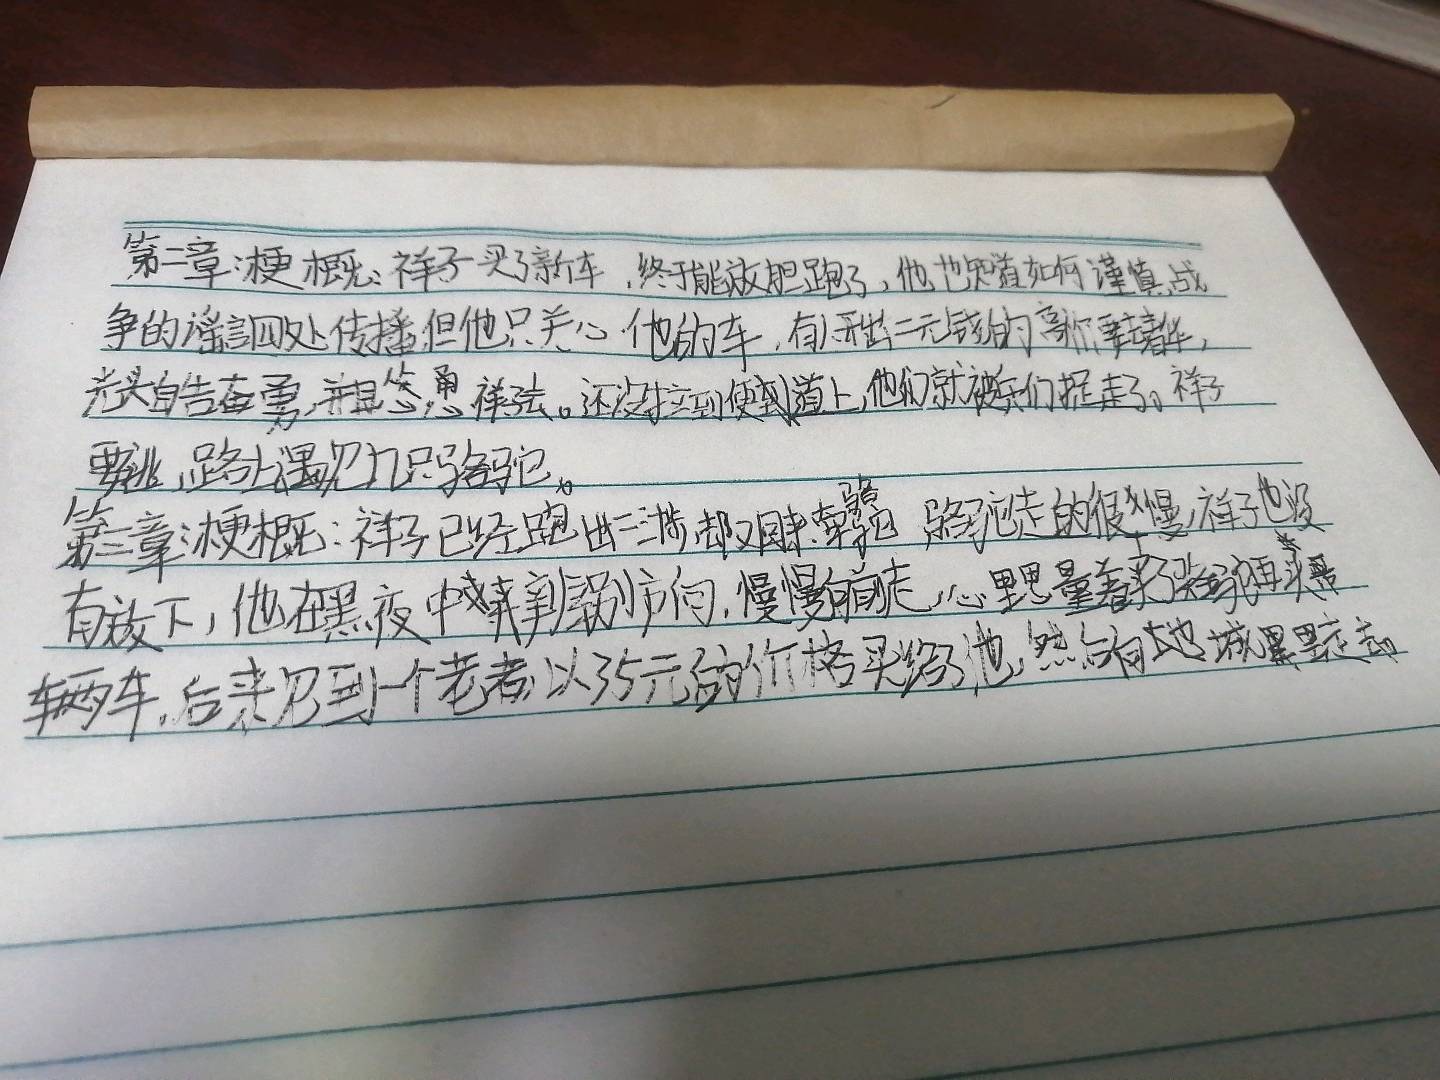 第二章:梗概:祥子买了新车,终于能放胆跑了,他也知道如何谨慎,战
争的谣言四处传播,但他只关心他的车,有人出二元钱的高价拉清华,
光头自告奋勇,并且怂恿祥子去。还没拉到便到道上,他们就被兵们捉走了。祥子
要逃,路上遇见几只骆驼。
第三章:梗概:祥子已经跑出二三十步,却又回来牵骆驼 骆驼走的很慢,祥子也没
有放下,他在黑夜中摸索到了方向,慢慢向前走,心里思量着卖了骆驼再买
辆车,后来见到一个老者,以35元的价格买给了他,然后向城里走去。